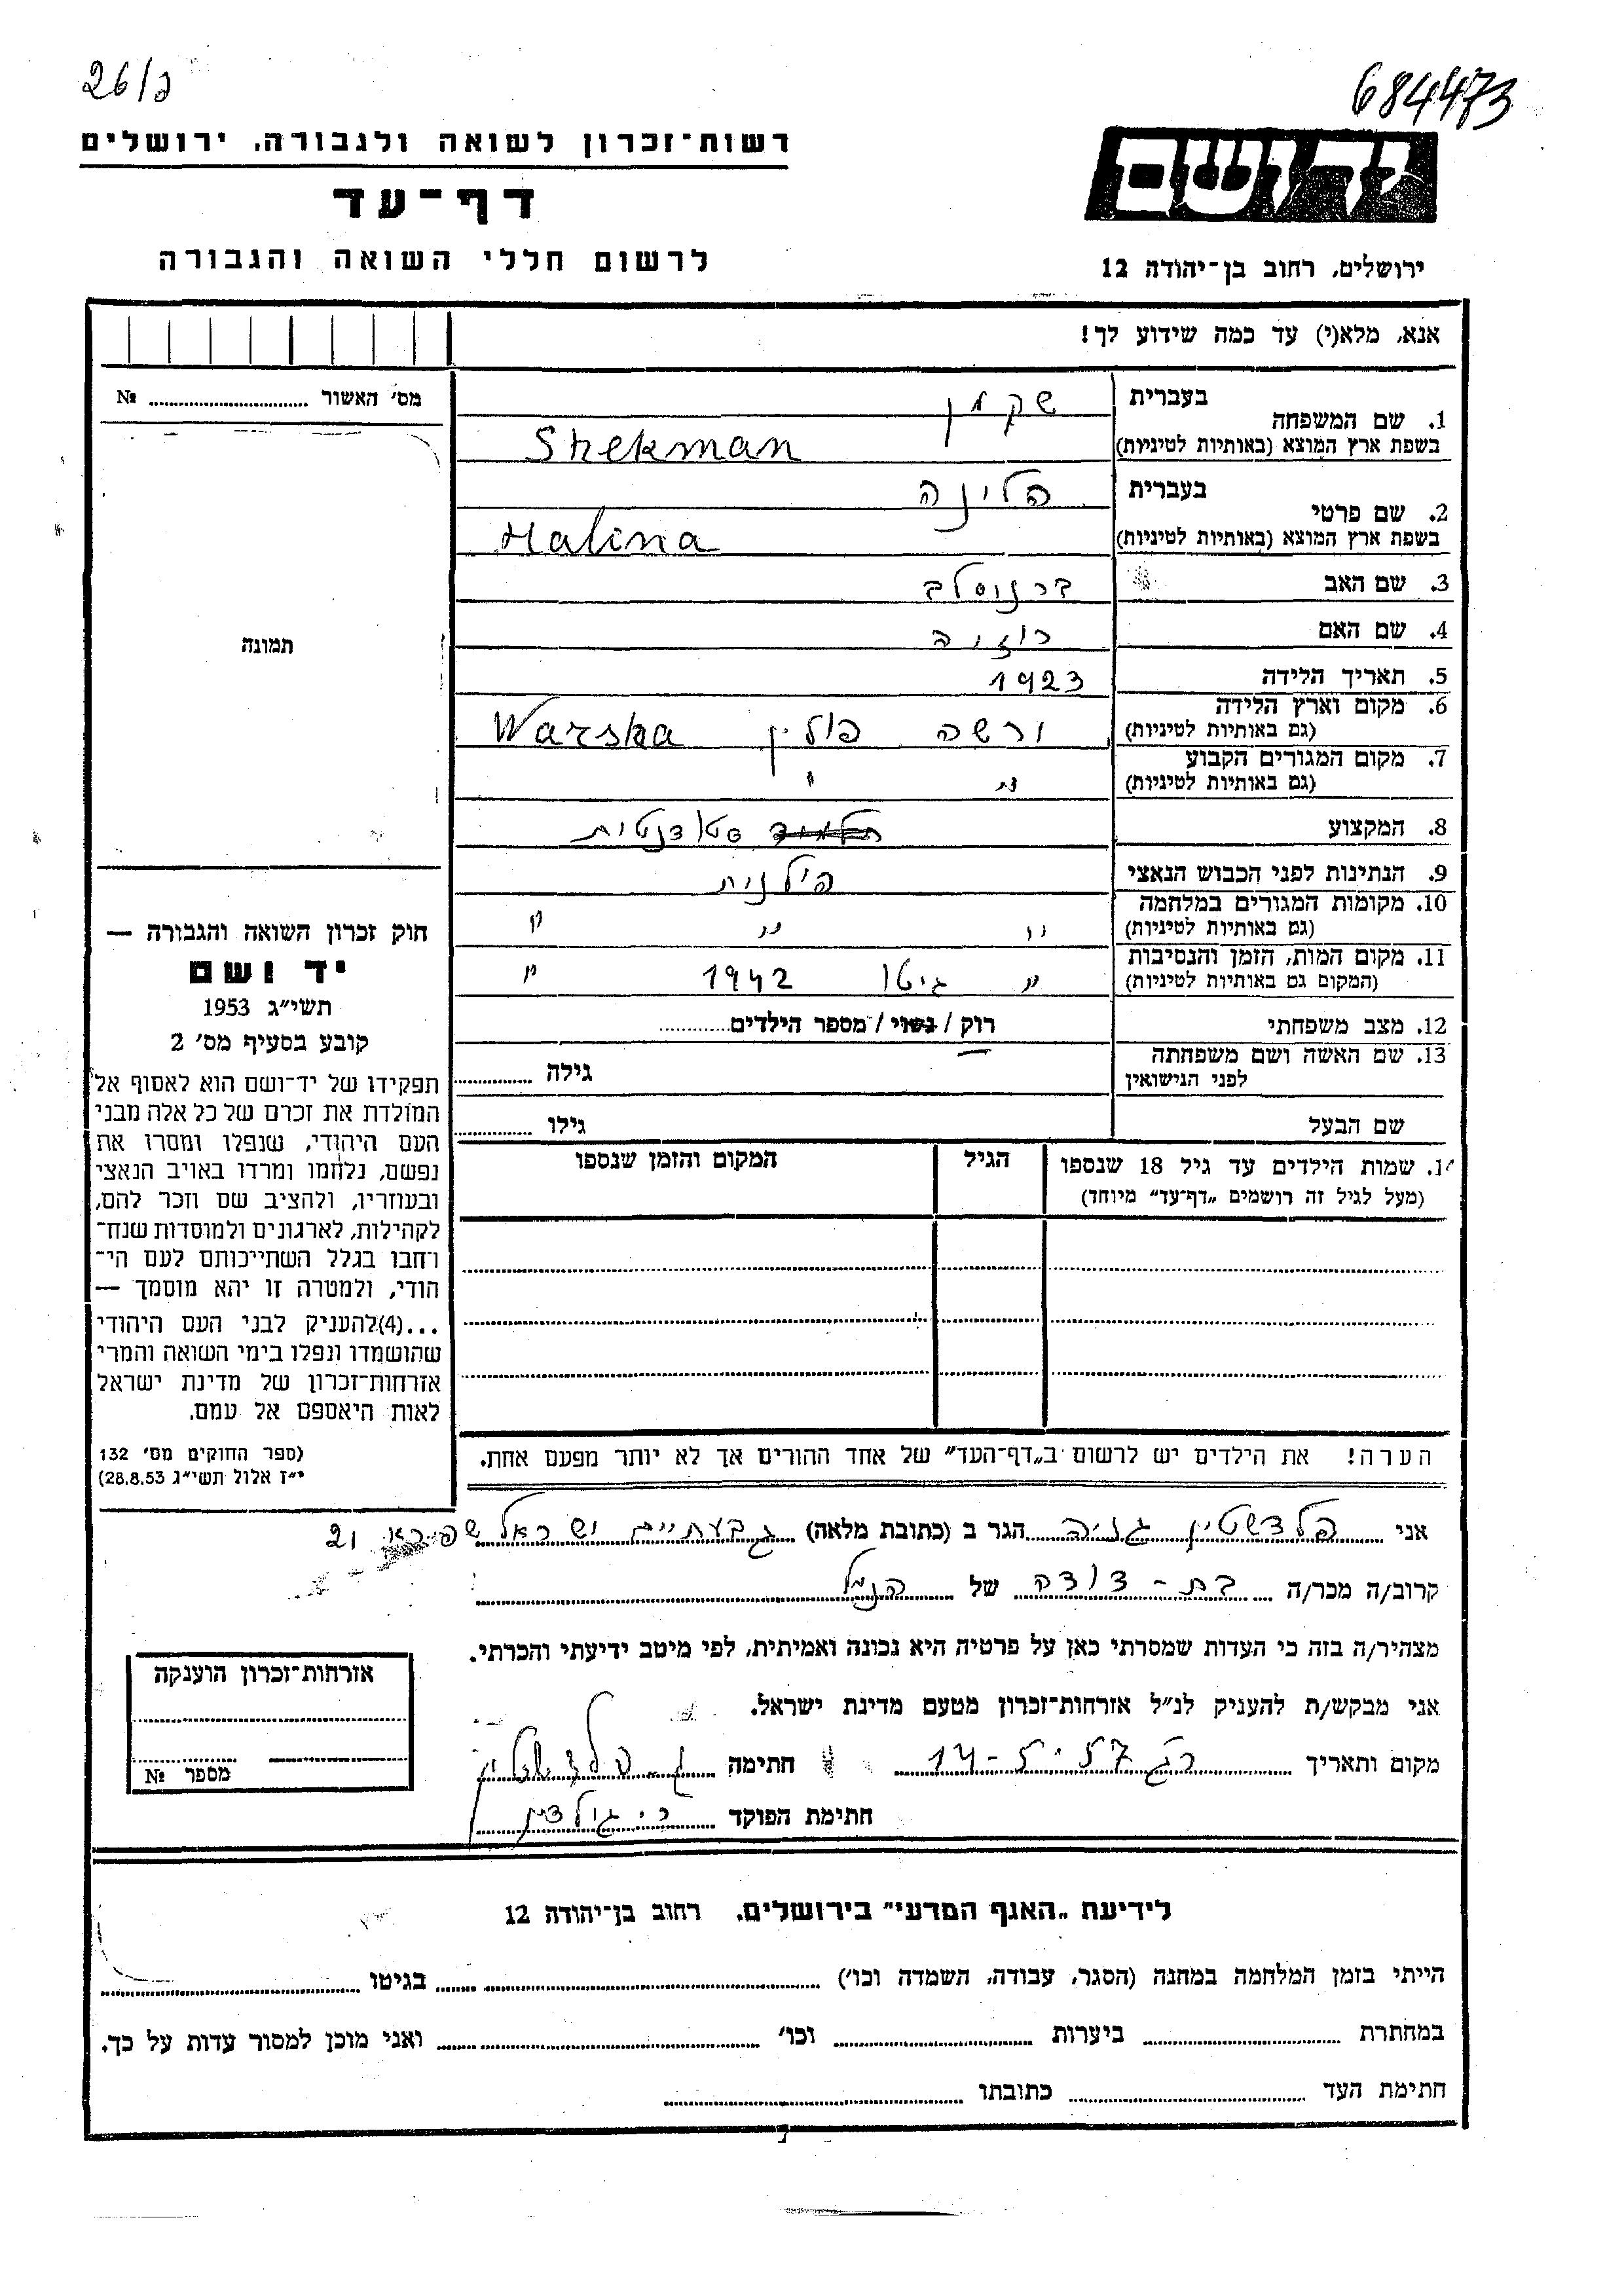 26/ג
684473
רשות־זכרון לשואה ולגבורה, ירושלים
דף־עד
לרשום חללי השואה והגבורה
יד ושם
ירושלים, רחוב בן־יהודה 12
אנא, מלא(י) עד כמה שידוע לך!
מס׳ האשור № 
תמונה
חוק זכרון השואה והגבורה —
יד ושם
תשי״ג 1953
קובע בסעיף מס׳ 2
תפקידו של יד־ושם הוא לאסוף אל
המולדת את זכרם של כל אלה מבני
העם היהודי, שנפלו ומסרו את
נפשם, נלחמו ומרדו באויב הנאצי
ובעוזריו, ולהציב שם וזכר להם,
לקהילות, לארגונים ולמוסדות שנח־
רחבו בגלל השתייכותם לעם הי־
הודי, ולמטרה זו יהא מוסמך —
...(4)להעניק לבני העם היהודי
שהושמדו ונפלו בימי השואה והמרי
אזרחות־זכרון של מדינת ישראל
לאות היאספם אל עמם.
(ספר החוקים מס׳ 132
י״ז אלול תשי״ג 28.8.53)
1. שם המשפחה
בעברית שקמן
בשפת ארץ המוצא (באותיות לטיניות) Shekman
2. שם פרטי
בעברית הלינה
בשפת ארץ המוצא (באותיות לטיניות) Halina
3. שם האב ברנוסלב
4. שם האם רוזיה
5. תאריך הלידה 1923
6. מקום וארץ הלידה ורשה פולין Warska
(גם באותיות לטיניות)
7. מקום המגורים הקבוע
(גם באותיות לטיניות) " "
8. המקצוע סטודנטית
9. הנתינות לפני הכבוש הנאצי פולנית
10. מקומות המגורים במלחמה
(גם באותיות לטיניות) " " "
11. מקום המות, הזמן והנסיבות
(המקום גם באותיות לטיניות) " גיטו 1942 "
12. מצב משפחתי רוק / נשוי / מספר הילדים
13. שם האשה ושם משפחתה
לפני הנישואין גילה
שם הבעל גילו
14. שמות הילדים עד גיל 18 שנספו הגיל המקום והזמן שנספו
(מעל לגיל זה רושמים „דף־עד״ מיוחד)
הערה! את הילדים יש לרשום ב„דף־העד״ של אחד ההורים אך לא יותר מפעם אחת.
אני פלדשטין גניה הגר ב (כתובת מלאה) גבעתיים ישראל שפירא 21
קרוב/ה מכר/ה בת - דודה של הנ"ל
מצהיר/ה בזה כי העדות שמסרתי כאן על פרטיה היא נכונה ואמיתית, לפי מיטב ידיעתי והכרתי.
אני מבקש/ת להעניק לנ״ל אזרחות־זכרון מטעם מדינת ישראל.
מקום ותאריך רג 14-5.57 חתימה ג. פלדשטין
חתימת הפוקד
אזרחות־זכרון הוענקה
מספר №
לידיעת „האגף המדעי״ בירושלים, רחוב בן־יהודה 12
הייתי בזמן המלחמה במחנה (הסגר, עבודה, השמדה וכו׳) בגיטו
במחתרת ביערות וכו׳ ואני מוכן למסור עדות על כך.
חתימת העד כתובתו